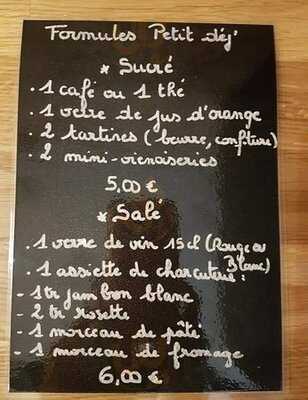 Formules Petit déj'
* Sucré
. 1 café ou 1 thé
. 1 verre de jus d'orange
. 2 tartines (beurre, confiture)
. 2 mini-vienaiseries
5,00 €
* Salé
. 1 verre de vin 15cl (Rouge ou Blanc)
. 1 assiette de charcuterie :
- 1 tr jambon blanc
- 2 tr rosette
- 1 morceau de pâté
- 1 morceau de fromage
6,00 €